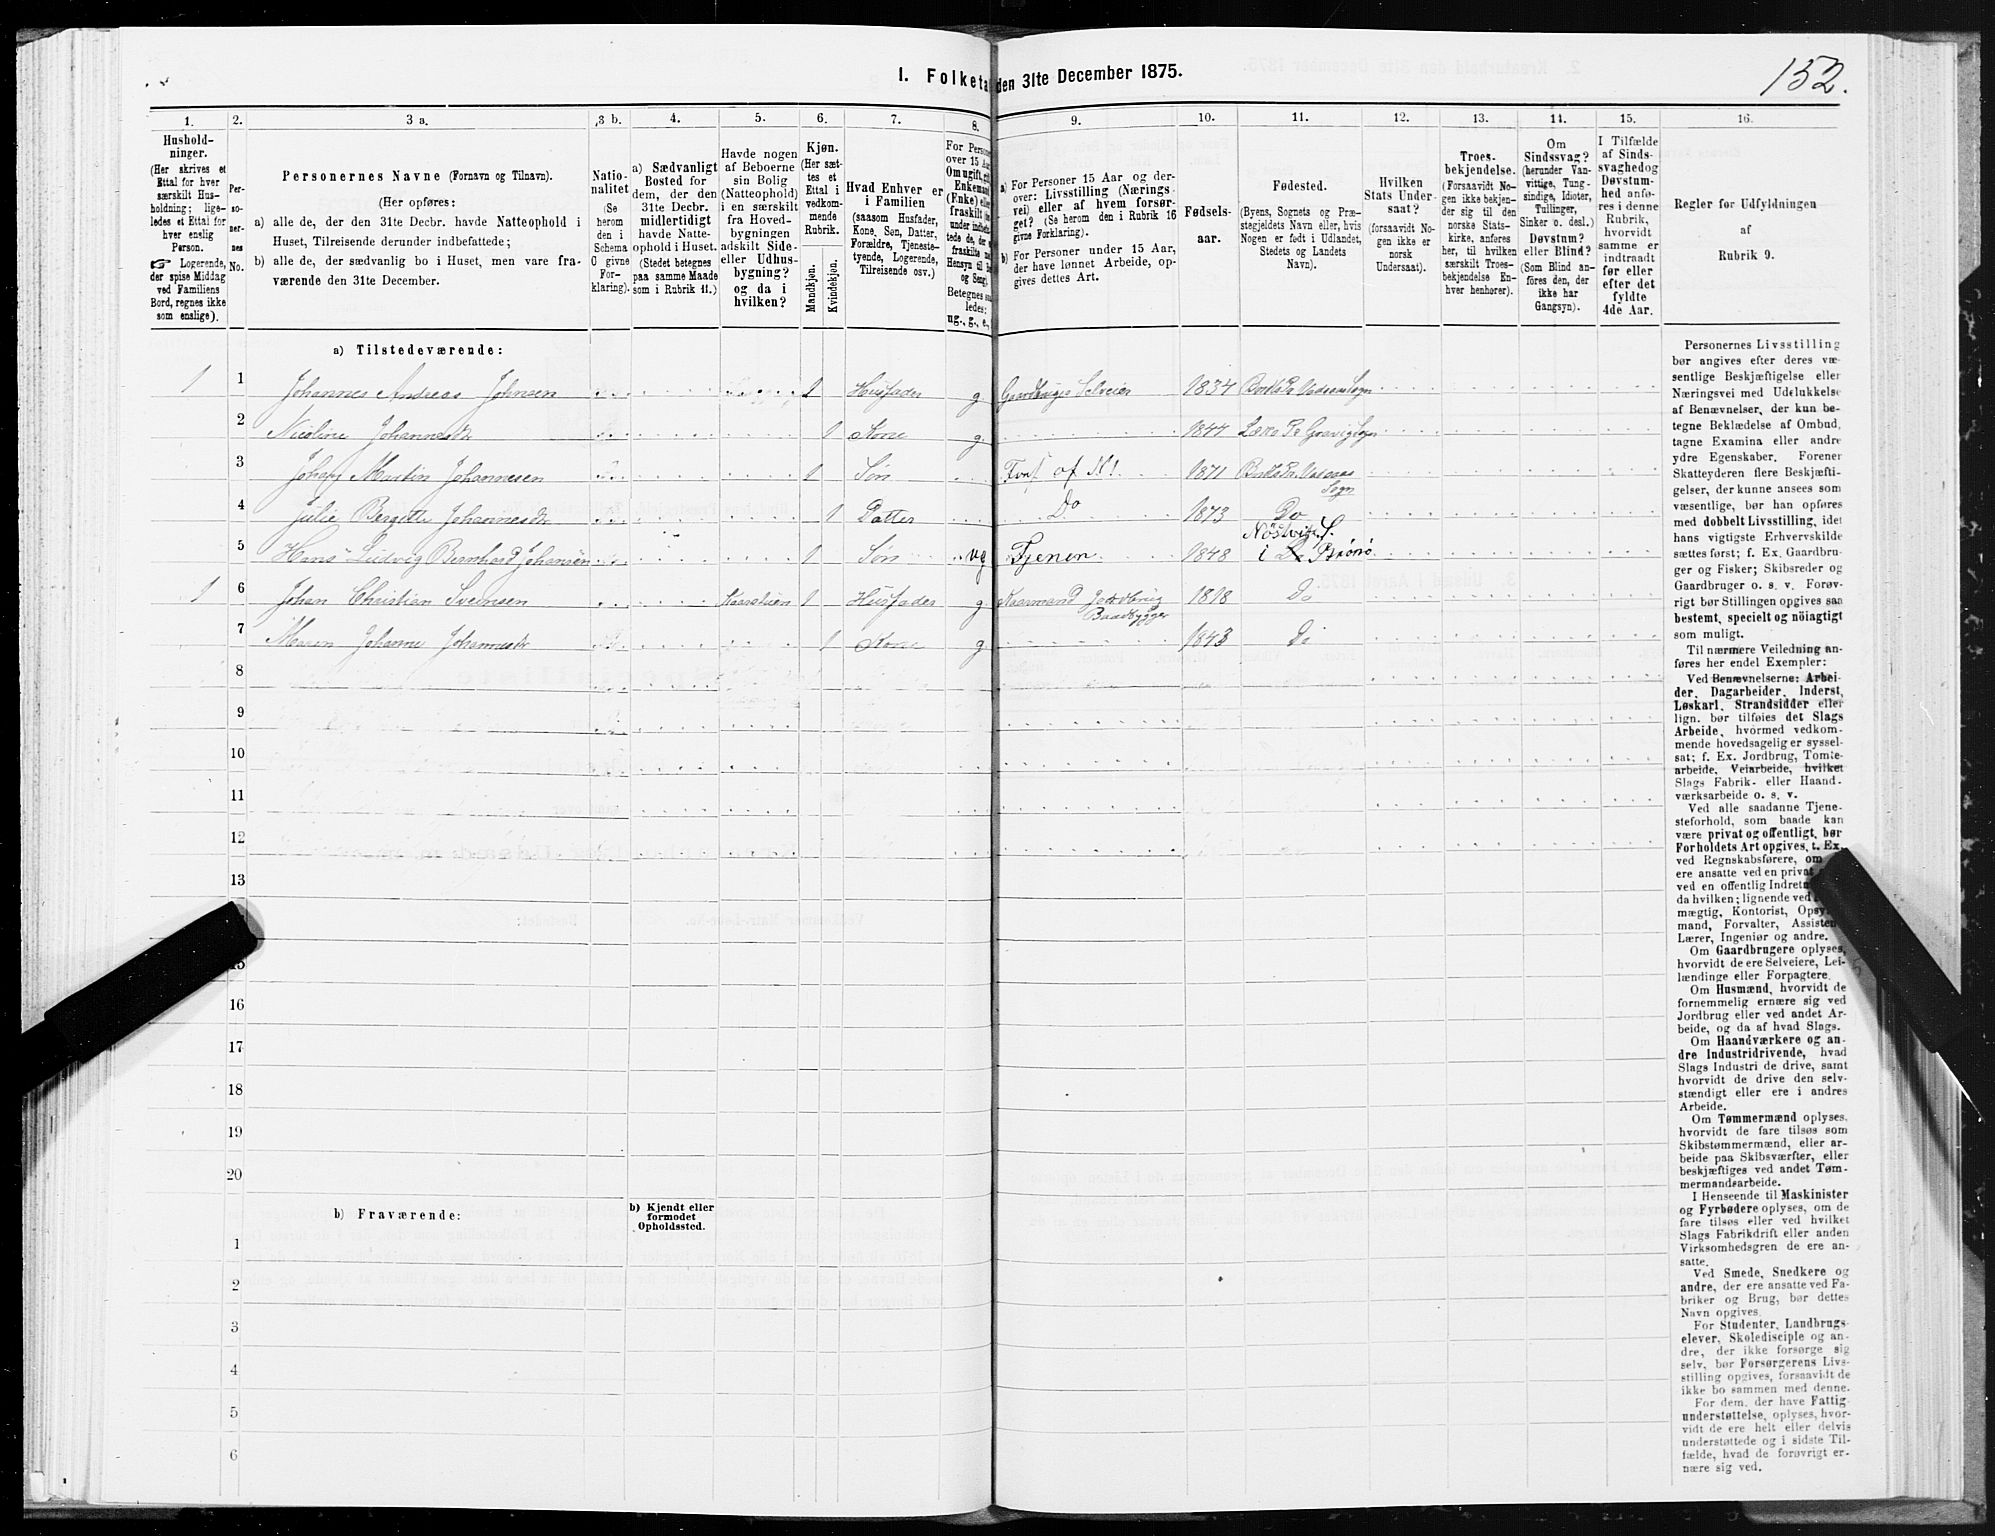 152.
1. Folketal den 31te December 1875.
1. 2. 3 a. 3 b. 4. 5. 6. 7. 8. 9. 10. 11. 12. 13. 14. 15. 16.
Hushold-
ninger.
(Her skrives et
Ettal for hver
særskilt Hus-
holdning; lige-
ledes et Ettal for
hver enslig
Person.
☞ Logerende,
der spise Middag
ved Familiens
Bord, regnes ikke
som enslige).
Per-
so-
ner-
nes
No.
Personernes Navne (Fornavn og Tilnavn).
(Her opføres:
a) alle de, der den 31te Decbr. havde Natteophold i
Huset, Tilreisende derunder indbefattede;
b) alle de, der sædvanlig bo i Huset, men vare fra-
værende den 31te December.
Natio-
nalitet
(Se
herom
den i
Schema
O givne
For-
klaring).
a) Sædvanligt
Bosted for
dem, der den
31te Decbr.
midlertidigt
havde Natte-
ophold i Huset.
(Stedet betegnes
paa samme Maade
som i Rubrik 11.)
Havde nogen
af Beboerne
sin Bolig
(Natteophold)
i en særskilt
fra Hoved-
bygningen
adskilt Side-
eller Udhus-
bygning?
og da i
hvilken?
Kjøn.
(Her sæt-
tes et
Ettal i
vedkom-
mende
Rubrik.
Mandkjøn.
Kvindekjøn.
Hvad Enhver er
i Familien
(saasom Husfader,
Kone, Søn, Datter,
Forældre, Tjeneste-
tyende, Logerende,
Tilreisende osv.)
For Person
over 15 Aar
Om ugift, gift
Enkemand
(Enke) eller
fraskilt
Betegnes saa
ledes:
ug., g., e.,
a) For Personer 15 Aar og der-
over: Livsstilling (Nærings-
vei) eller af hvem forsør-
get? (Se herom den i Rubrik 16
givne Forklaring).
b) For Personer under 15 Aar,
der have lønnet Arbeide, op-
gives dettes Art.
Fødsels-
aar.
Fødested.
(Byens, Sognets og Præ-
stegjeldets Navn eller, hvis
Nogen er født i Udlandet,
Stedets og Landets
Navn).
Hvilken
Stats Under-
saat?
(forsaavidt No-
gen ikke er
norsk
Undersaat).
Troes-
bekjendelse.
(Forsaavidt No-
gen ikke bekjen-
der sig til den
norske Stats-
kirke, anføres
her, til hvilken
særskilt Troes-
bekjendelse En-
hver henhører).
Om
Sindssvag?
(herunder Van-
vittige, Tung-
sindige, Idioter,
Tullinger,
Sinker o. desl.)
Døvstum?
eller Blind?
(Som Blind an-
føres den, der
ikke har
Gangsyn).
I Tilfælde
af Sinds-
svaghed og
Døvstum-
hed anfø-
res i denne
Rubrik,
hvorvidt
samme er
indtraadt
før eller
efter det
fyldte
4de Aar.
Regler for Udfyldningen
af
Rubrik 9.
a) Tilstedeværende:
1 1 Johannes Andreas Johnsen 1 Husfader g Gaardbruger Selveier 1834
2 Nicoline Johannesdr 1 Kone g. 1844
3 Johan Martin Johannesen 1 Søn 1871
Sogn
4 Julie Bergitte Johannesdr 1 Datter Do 1873 Do
5 Hans Ludvig Bernhard Johansen 1 Søn ug Tjener 1848
1 6 Johan Christian Sveinsen 1 Husfader g Kaarmand Jordbrug 1818 Do
Baadbygger
7 Maren Johanne Johannesdr 1 Kone g 1843 Do
8
9
10
11
12
13
15
16
17
18
19
20
b) Fraværende:
b) Kjendt eller
formodet
Opholdssted.
1
2
3
4
5
6
Personernes Livsstilling
bør angives efter deres væ-
sentlige Beskjæftigelse eller
Næringsvei med Udelukkelse
af Benævnelser, der kun be-
tegne Beklædelse af Ombud,
tagne Examina eller andre
ydre Egenskaber. Forener
Skatteyderen flere Beskjæfti-
gelser, der kunne ansees som
væsentlige, bør han opføres
med dobbelt Livsstilling, idet
hans vigtigste Erhvervskilde
sættes først; f. Ex. Gaardbru-
ger og Fisker; Skibsreder og
Gaardbruger o. s. v. Forøv-
rigt bør Stillingen opgives saa
bestemt, specielt og nöiagtigt
som muligt.
Til nærmere Veiledning an-
føres her endel Exempler:
Ved Benævnelserne: Arbei-
der, Dagarbeider, Inderst,
Løskarl, Strandsidder eller
lign. bør tilføies det Slags
Arbeide, hvormed vedkom-
mende hovedsagelig er syssel-
sat; f. Ex. Jordbrug, Tomte-
arbeide, Veiarbeide, hvilket
Slags Fabrik- eller Haand-
værksarbeide o. s. v.
Ved alle saadanne Tjene-
steforhold, som baade kan
være privat og offentligt, bør
Forholdets Art opgives, t. Ex.
ved Regnskabsførere, om
ere ansatte ved en privat
ved en offentlig Indretn
da hvilken; lignende ved
mægtig, Kontorist, Opsy
mand, Forvalter, Assistent
Lærer, Ingeniør og andre.
Om Gaardbrugere oplyses,
hvorvidt de ere Selveiere, Lei-
lændinge eller Forpagtere.
Om Husmænd, hvorvidt de
fornemmelig ernære sig ved
Jordbrug eller ved andet Ar-
beide, og da af hvad Slags.
Om Haandværkere og an-
dre Industridrivende, hvad
Slags Industri de drive, samt
hvorvidt de drive den selv-
stændigt eller ere i andres
Arbeide.
Om Tømmermænd oplyses,
hvorvidt de fare tilsøs som
Skibstømmermænd, eller ar-
beide paa Skibsværfter, eller
beskjæftiges ved andet Tøm-
mermandsarbeide.
I Henseende til Maskinister
og Fyrbødere oplyses, om de
fare tilsøs eller ved hvilket
Slags Fabrikdrift eller anden
Virksomhedsgren de ere an-
satte.
Ved Smede, Snedkere og
andre, der ere ansatte ved Fa-
briker og Brug, bør dettes
Navn opgives.
For Studenter, Landbrugs-
elever, Skoledisciple og an-
dre, der ikke forsørge sig
selv, bør Forsørgerens Livs-
stilling opgives, forsaavidt de
ikke bo sammen med denne.
For dem, der have Fattig-
understøttelse, oplyses, hvor-
vidt de ere helt eller delvis
understøttede og i sidste Til-
fælde, hvad de forøvrigt er-
nære sig ved.